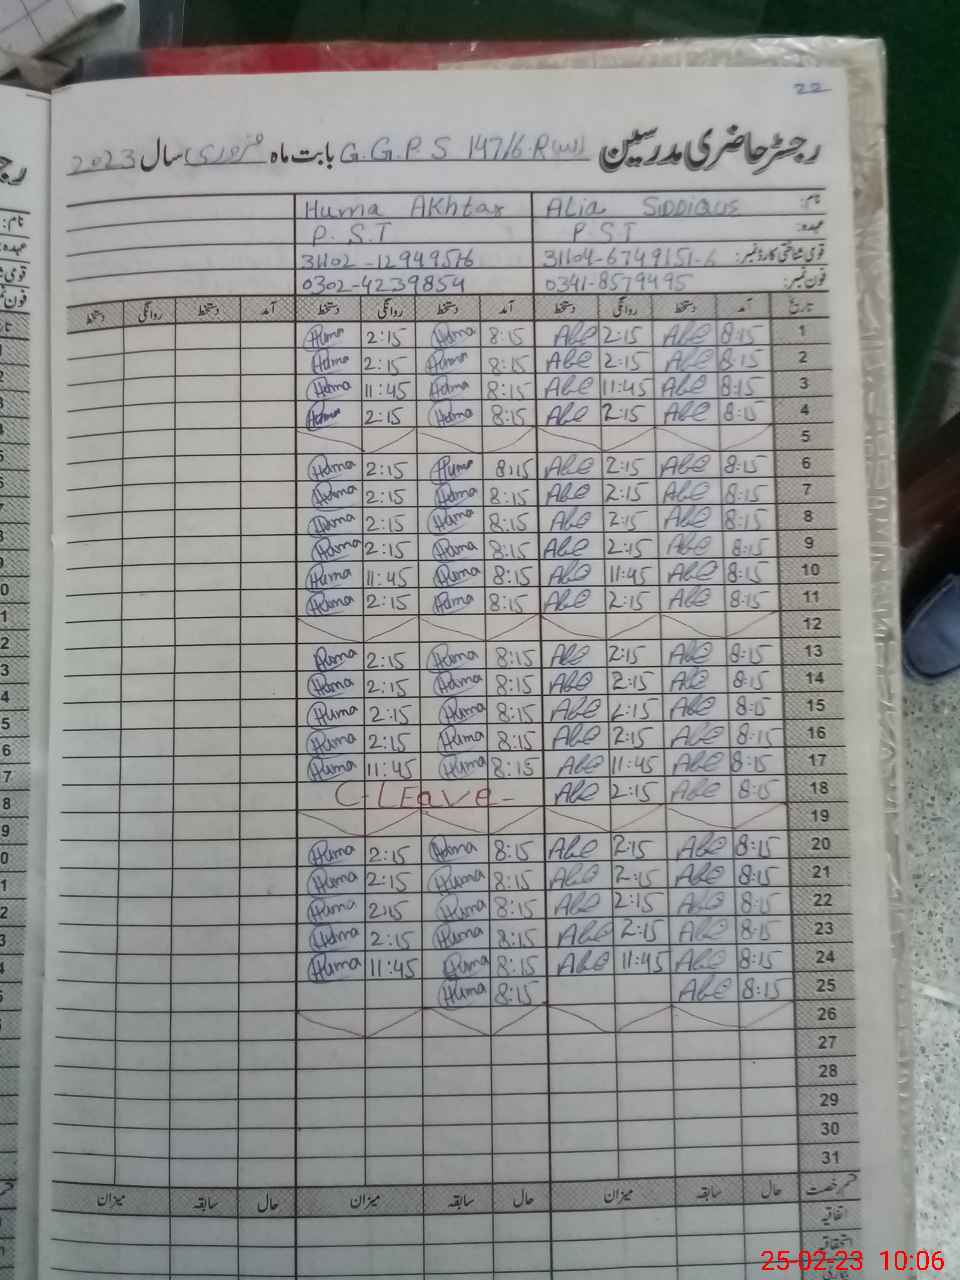 22
رجسٹر حاضری مدرسین G.G.P.S 147/6.R بابت ماہ فروری سال 2023
نام: Alia Siddique Huma Akhtar
عہدہ: P.S.T P.S.T
قومی شناختی کارڈ نمبر: 31104-6749151-6
فون نمبر: 0341-8579495 0302-4239854
تاریخ آمد دستخط روانگی دستخط آمد دستخط روانگی دستخط آمد دستخط روانگی دستخط
1 8:15 Ale 2:15 Ale 8:15 Huma 2:15 Huma
2 8:15 Ale 2:15 Ale 8:15 Huma 2:15 Huma
3 8:15 Ale 11:45 Ale 8:15 Huma 11:45 Huma
4 8:15 Ale 2:15 Ale 8:15 Huma 2:15 Huma
5
6 8:15 Ale 2:15 Ale 8:15 Huma 2:15 Huma
7 8:15 Ale 2:15 Ale 8:15 Huma 2:15 Huma
8 8:15 Ale 2:15 Ale 8:15 Huma 2:15 Huma
9 8:15 Ale 2:15 Ale 8:15 Huma 2:15 Huma
10 8:15 Ale 11:45 Ale 8:15 Huma 11:45 Huma
11 8:15 Ale 2:15 Ale 8:15 Huma 2:15 Huma
12
13 8:15 Ale 2:15 Ale 8:15 Huma 2:15 Huma
14 8:15 Ale 2:15 Ale 8:15 Huma 2:15 Huma
15 8:15 Ale 2:15 Ale 8:15 Huma 2:15 Huma
16 8:15 Ale 2:15 Ale 8:15 Huma 2:15 Huma
17 8:15 Ale 11:45 Ale 8:15 Huma 11:45 Huma
18 8:15 Ale 2:15 Ale C-Leave-
19
20 8:15 Ale 2:15 Ale 8:15 Huma 2:15 Huma
21 8:15 Ale 2:15 Ale 8:15 Huma 2:15 Huma
22 8:15 Ale 2:15 Ale 8:15 Huma 2:15 Huma
23 8:15 Ale 2:15 Ale 8:15 Huma 2:15 Huma
24 8:15 Ale 11:45 Ale 8:15 Huma 11:45 Huma
25 8:15 Ale 8:15 Huma
26
27
28
29
30
31
قسم رخصت حال سابقہ میزان حال سابقہ میزان حال سابقہ میزان
اتفاقیہ
استحقاقیہ
25-02-23 10:06